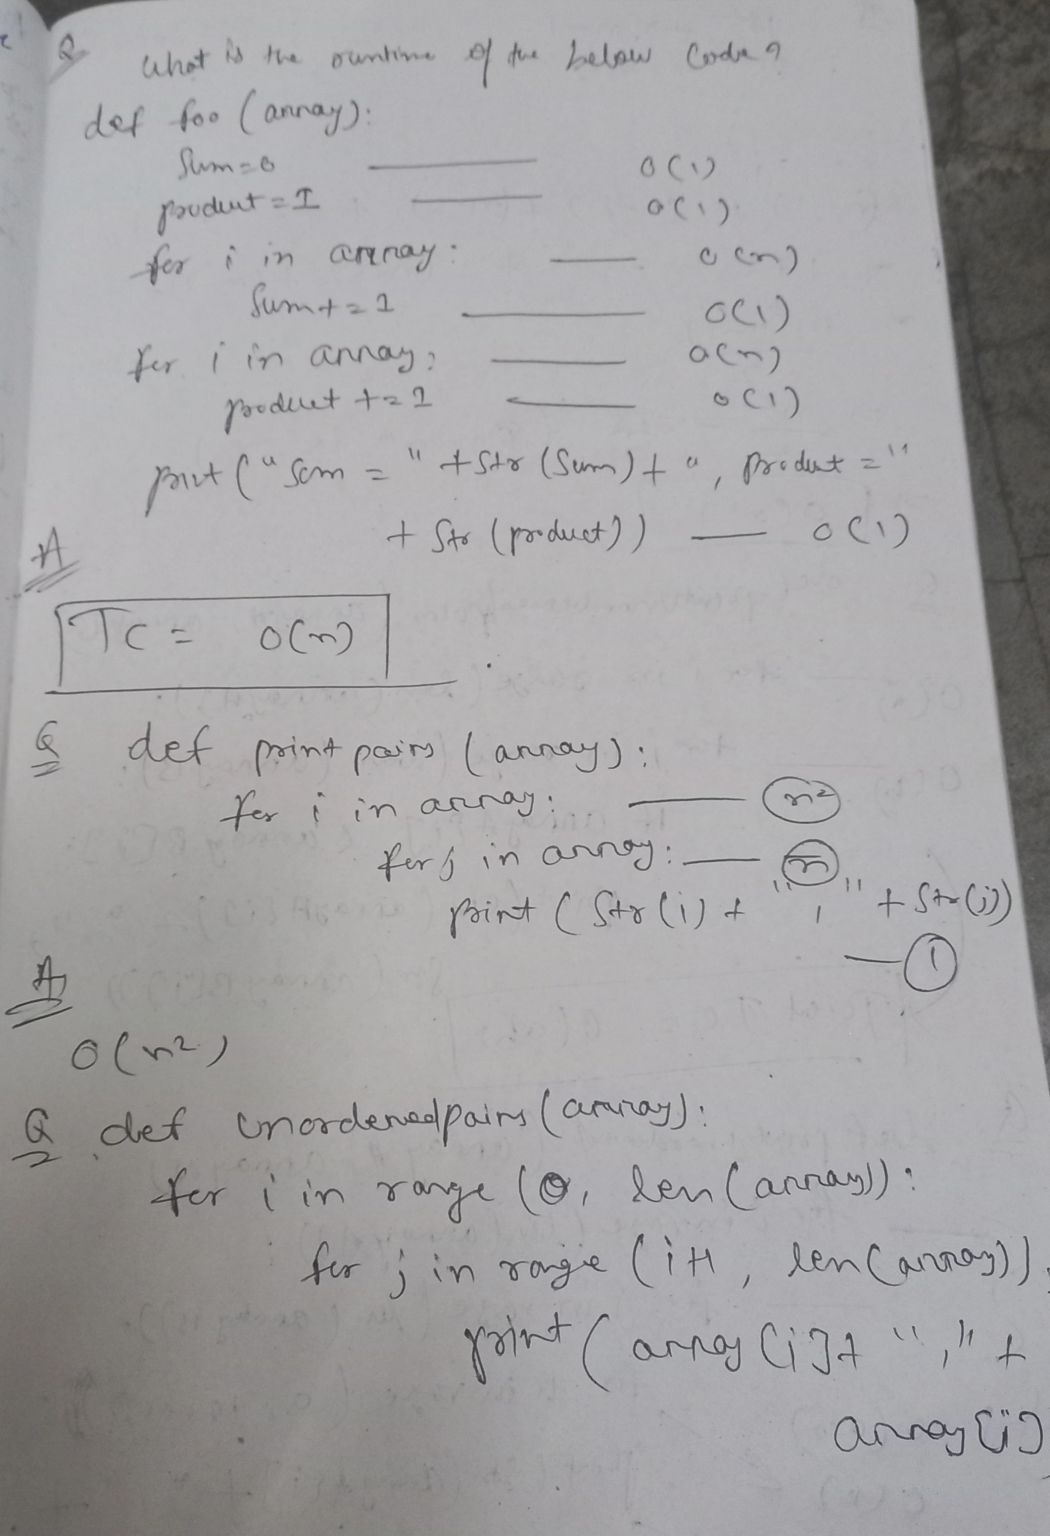 Q What is the runtime of the below code?
def foo (array):
Sum=0 O(1)
product=1 O(1)
for i in array: O(n)
Sum+=1 O(1)
for i in array: O(n)
product +=1 O(1)
print ("Sum = " + Str (Sum) + ", Product ="
+ Str (product)) — O(1)
A
TC = O(n)
Q def print pairs (array):
for i in array: — n²
for j in array: — n
print (Str(i) + "," + Str(j))
— 1
A
O(n²)
Q def unorderedpairs (array):
for i in range (0, len(array)):
for j in range (i+1, len(array)):
print (array[i]+ "," +
array[j]